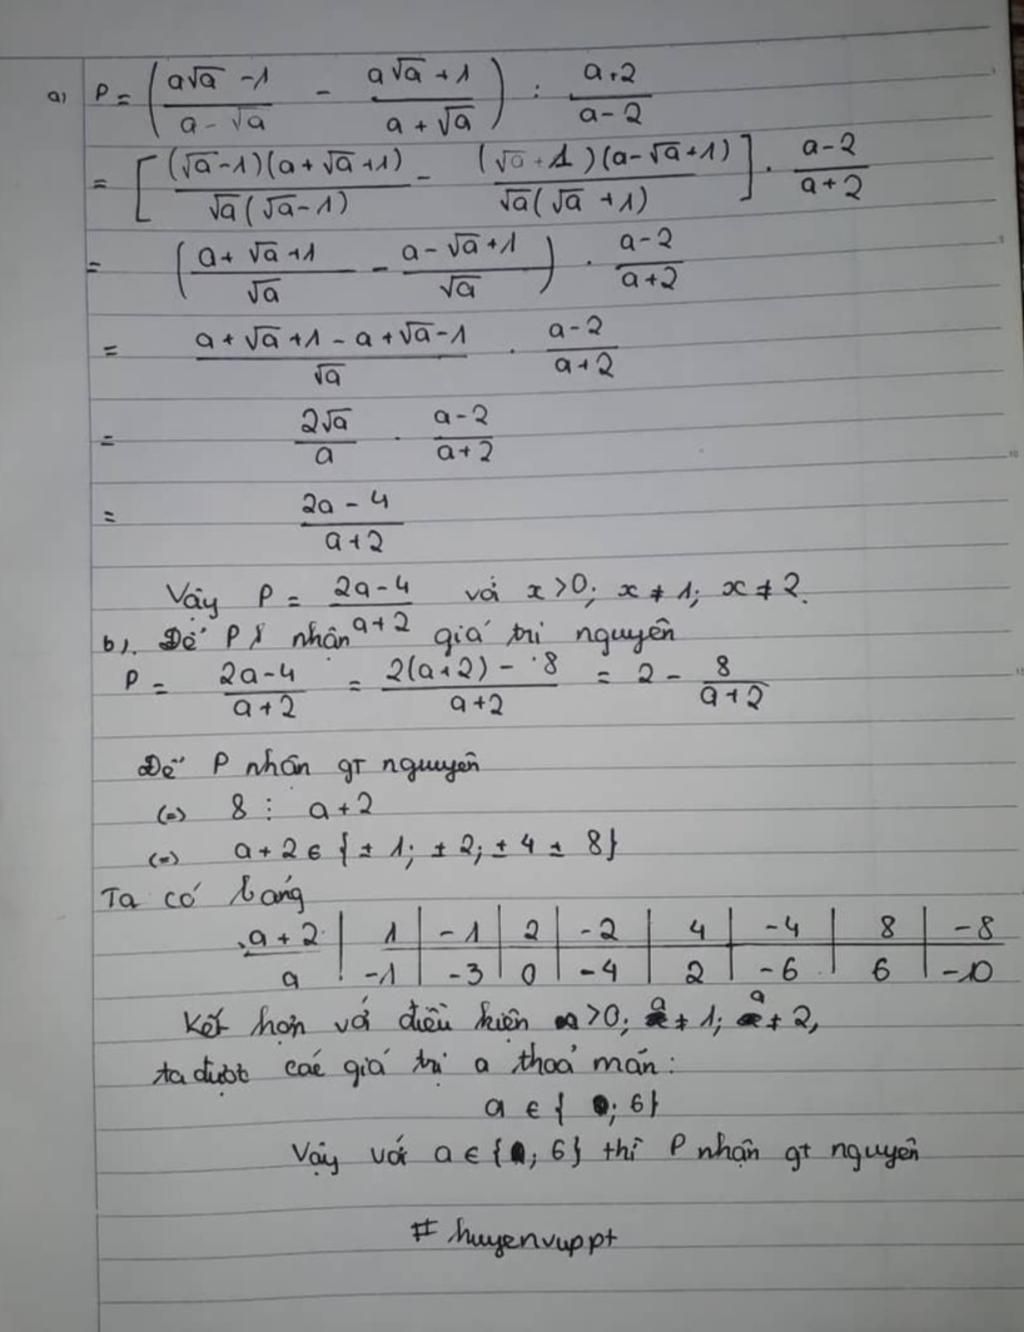 a) P = (a√a - 1 / a - √a - a√a + 1 / a + √a) : a+2 / a-2
= [(√a-1)(a+√a+1) / √a(√a-1) - (√a+1)(a-√a+1) / √a(√a+1)] . a-2 / a+2
= (a+√a+1 / √a - a-√a+1 / √a) . a-2 / a+2
= a+√a+1-a+√a-1 / √a . a-2 / a+2
= 2√a / a . a-2 / a+2
= 2a-4 / a+2
Vậy P = 2a-4 / a+2 với x>0; x≠1; x≠2.
b). Để P nhận giá trị nguyên
P = 2a-4 / a+2 = 2(a+2) - 8 / a+2 = 2 - 8 / a+2
Để P nhận gt nguyên
(=) 8 ⋮ a+2
(=) a+2 ∈ {±1; ±2; ±4 ± 8}
Ta có bảng
a+2 | 1 | -1 | 2 | -2 | 4 | -4 | 8 | -8
a | -1 | -3 | 0 | -4 | 2 | -6 | 6 | -10
Kết hợp với điều kiện a>0; a≠1; a≠2,
ta được các giá trị a thoả mãn:
a ∈ { ; 6}
Vậy với a ∈ { ; 6} thì P nhận gt nguyên
# huyenvuppt